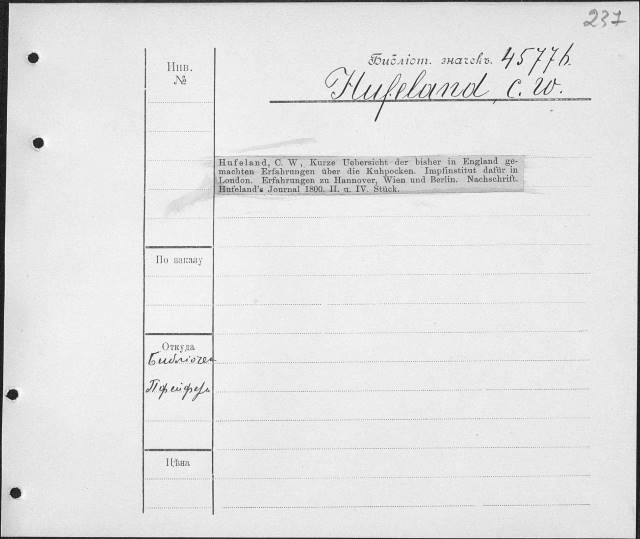 237
Библіот. значекъ. 4577b.
Инв.
№
Hufeland, C. W.
Hufeland, C. W., Kurze Uebersicht der bisher in England ge-
machten Erfahrungen über die Kuhpocken. Impfinstitut dafür in
London. Erfahrungen zu Hannover, Wien und Berlin. Nachschrift.
Hufeland's Journal 1800. II. u. IV. Stück.
По заказу
Откуда
Библіотека
Пфейфера
Цѣна